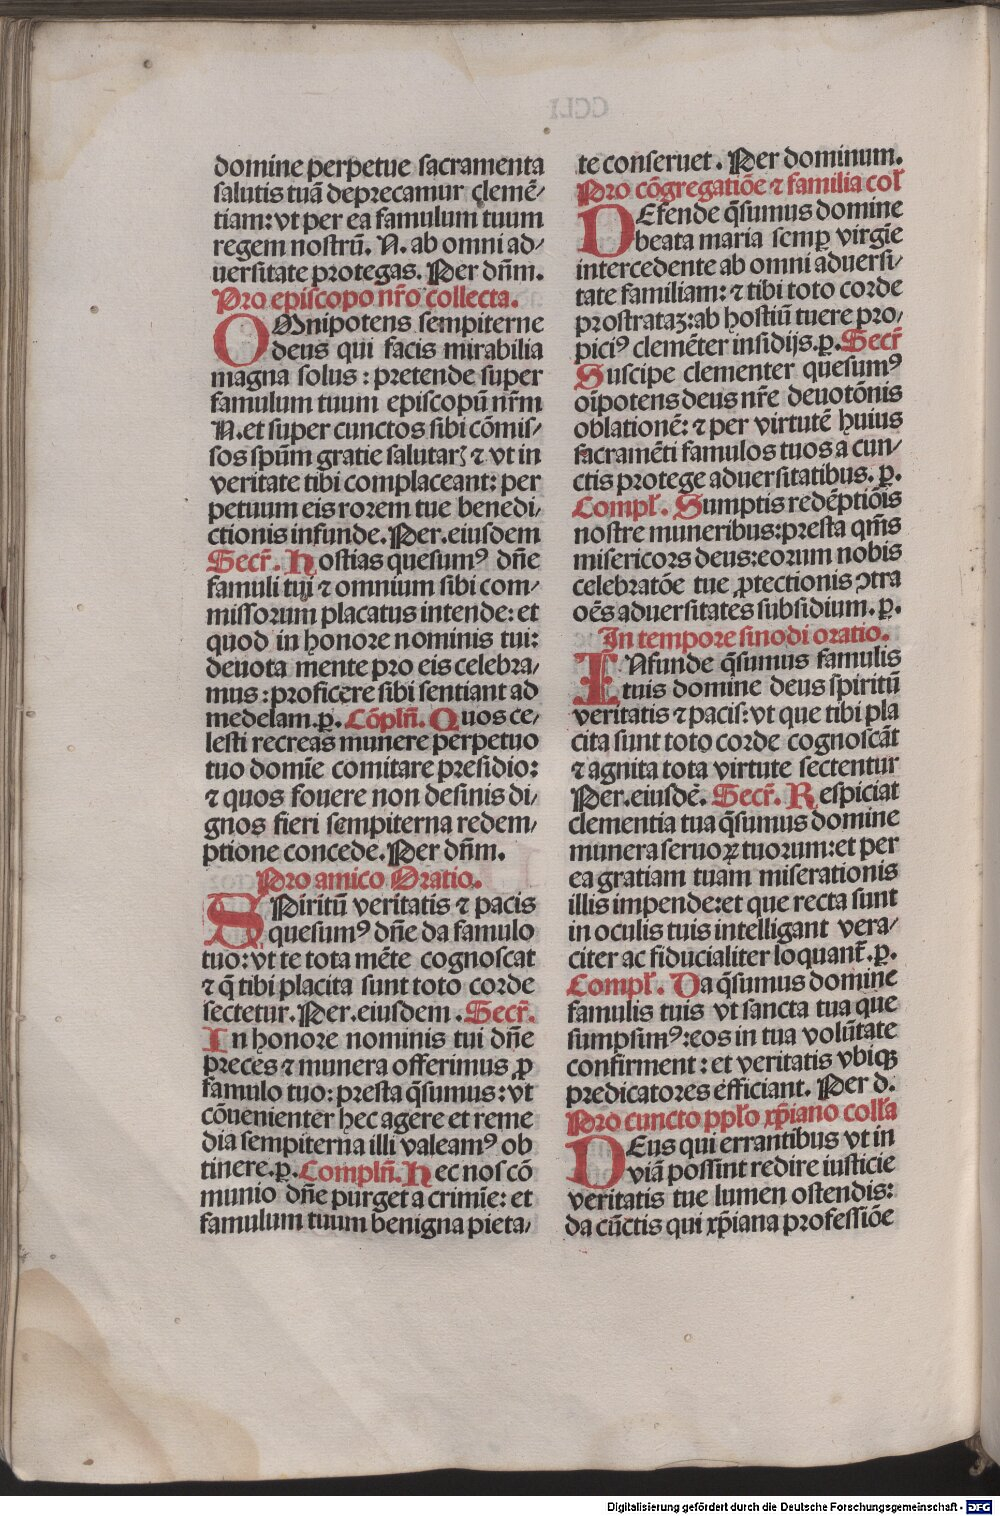 domine perpetue sacramenta
salutis tuā deprecamur clemē/
tiam: vt per ea famulum tuum
regem nostrū. N. ab omni ad/
uersitate protegas. Per dn̄m.
Pro episcopo nr̄o collecta.
OMnipotens sempiterne
deus qui facis mirabilia
magna solus: pretende super
famulum tuum episcopū nr̄m
N. et super cunctos sibi cōmis/
sos spūm gratie salutarꝭ ⁊ vt in
veritate tibi complaceant: per
petuum eis rorem tue benedi/
ctionis infunde. Per. eiusdem
Secr̄. Hostias quesumꝰ dn̄e
famuli tui ⁊ omnium sibi com/
missorum placatus intende: et
quod in honore nominis tui:
deuota mente pro eis celebra/
mus: proficere sibi sentiant ad
medelam. p̲. Cōpln̄. Quos ce/
lesti recreas munere perpetuo
tuo domīe comitare presidio:
⁊ quos fouere non desinis di/
gnos fieri sempiterna redem/
ptione concede. Per dn̄m.
Pro amico Oratio.
SPiritū veritatis ⁊ pacis
quesumꝰ dn̄e da famulo
tuo: vt te tota mēte cognoscat
⁊ q̄ tibi placita sunt toto corde
sectetur. Per. eiusdem. Secr̄.
In honore nominis tui dn̄e
preces ⁊ munera offerimus ꝓ
famulo tuo: presta q̄sumus: vt
cōuenienter hec agere et reme
dia sempiterna illi valeamꝰ ob
tinere. p̲. Compln̄. Hec nos cō
munio dn̄e purget a crimīe: et
famulum tuum benigna pieta/
te conseruet. Per dominum.
Pro cōgregatiōe ⁊ familia col̄
DEfende q̄sumus domine
beata maria semp̲ virgīe
intercedente ab omni aduersi/
tate familiam: ⁊ tibi toto corde
prostrataꝫ: ab hostiū tuere pro/
piciꝰ clemēter insidijs. p̲. Secr̄
Suscipe clementer quesumꝰ
oīpotens deus nr̄e deuotōnis
oblationē: ⁊ per virtutē huius
sacramēti famulos tuos a cun/
ctis protege aduersitatibus. p̲.
Compl̄. Sumptis redēptiōis
nostre muneribus: presta qm̄s
misericors deus: eorum nobis
celebratōe tue ꝓtectionis ↄtra
oēs aduersitates subsidium. p̲.
In tempore sinodi oratio.
INfunde q̄sumus famulis
tuis domine deus spiritū
veritatis ⁊ pacis: vt que tibi pla
cita sunt toto corde cognoscāt
⁊ agnita tota virtute sectentur
Per. eiusdē. Secr̄. Respiciat
clementia tua q̄sumus domine
munera seruoꝝ tuorum: et per
ea gratiam tuam miserationis
illis impende: et que recta sunt
in oculis tuis intelligant vera/
citer ac fiducialiter loquant̄. p̲.
Compl̄. Da q̄sumus domine
famulis tuis vt sancta tua que
sumpsimꝰ: eos in tua volūtate
confirment: et veritatis vbiqꝫ
predicatores efficiant. Per d.
Pro cuncto ppl̄o xp̄iano coll̄a
DEus qui errantibus vt in
viā possint redire iusticie
veritatis tue lumen ostendis:
da cūctis qui xp̄iana professiōe
Digitalisierung gefördert durch die Deutsche Forschungsgemeinschaft - DFG